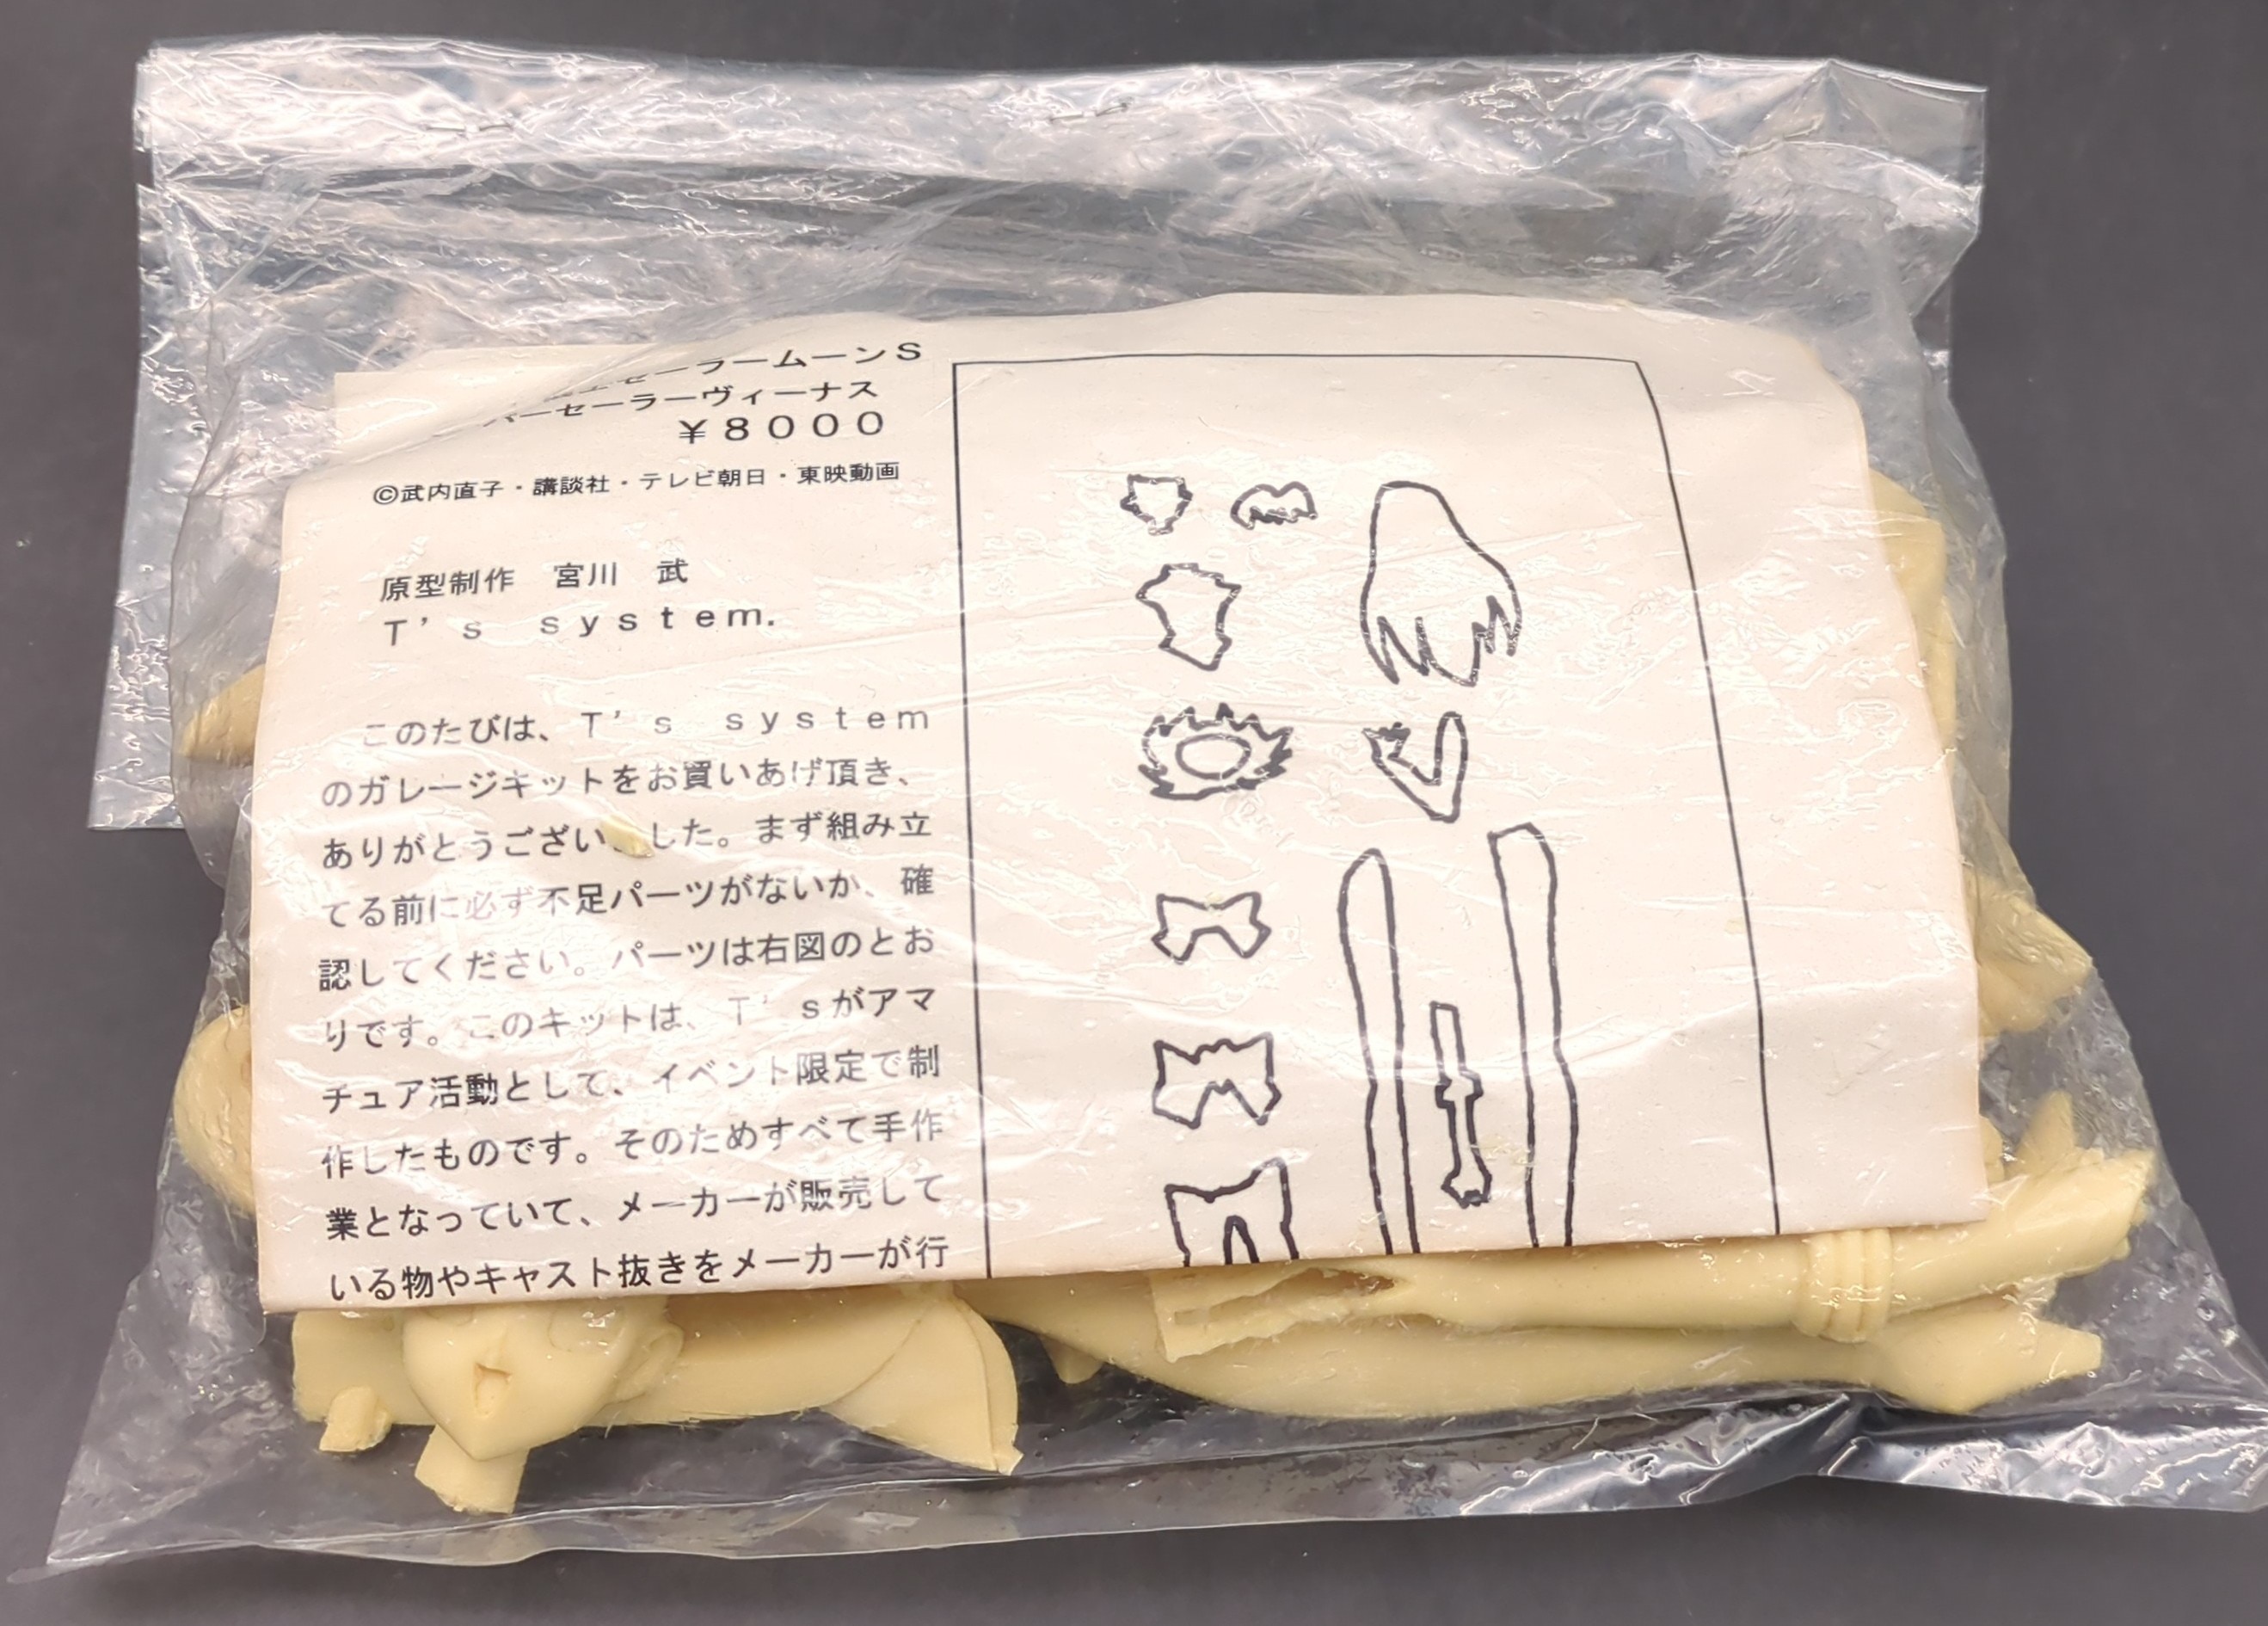 セーラームーンS
ーセーラーヴィーナス
¥8000
©武内直子・講談社・テレビ朝日・東映動画
原型制作　宮川　武
T's　system.
このたびは、T's　system
のガレージキットをお買いあげ頂き、
ありがとうござい した。まず組み立
てる前に必ず不足パーツがないか、確
認してください。パーツは右図のとお
りです。このキットは、T'sがアマ
チュア活動として、イベント限定で制
作したものです。そのためすべて手作
業となっていて、メーカーが販売して
いる物やキャスト抜きをメーカーが行